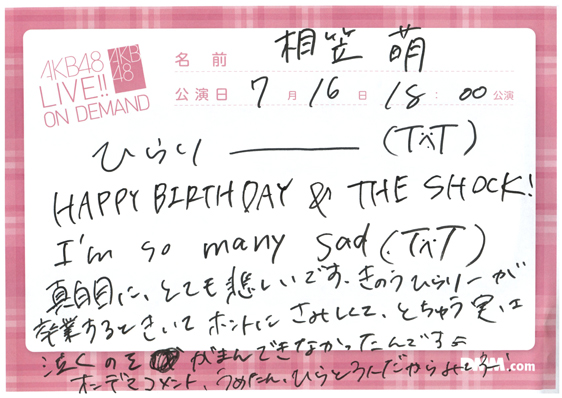 AKB48
LIVE!!
ON DEMAND
AKB
48
名前 相笠 萌
公演日 7月16日 18:00公演
ひらり ——— (TxT)
HAPPY BIRTHDAY & THE SHOCK!
I'm so many sad (.TxT)
真面目に、とても悲しいです、きのうひらりーが
卒業するときいてホントにさみしくて、とちゅう実は
泣くのを がまんできなかったんです
オンデマコメント、うめたん、ひらと3人だから
DMM.com